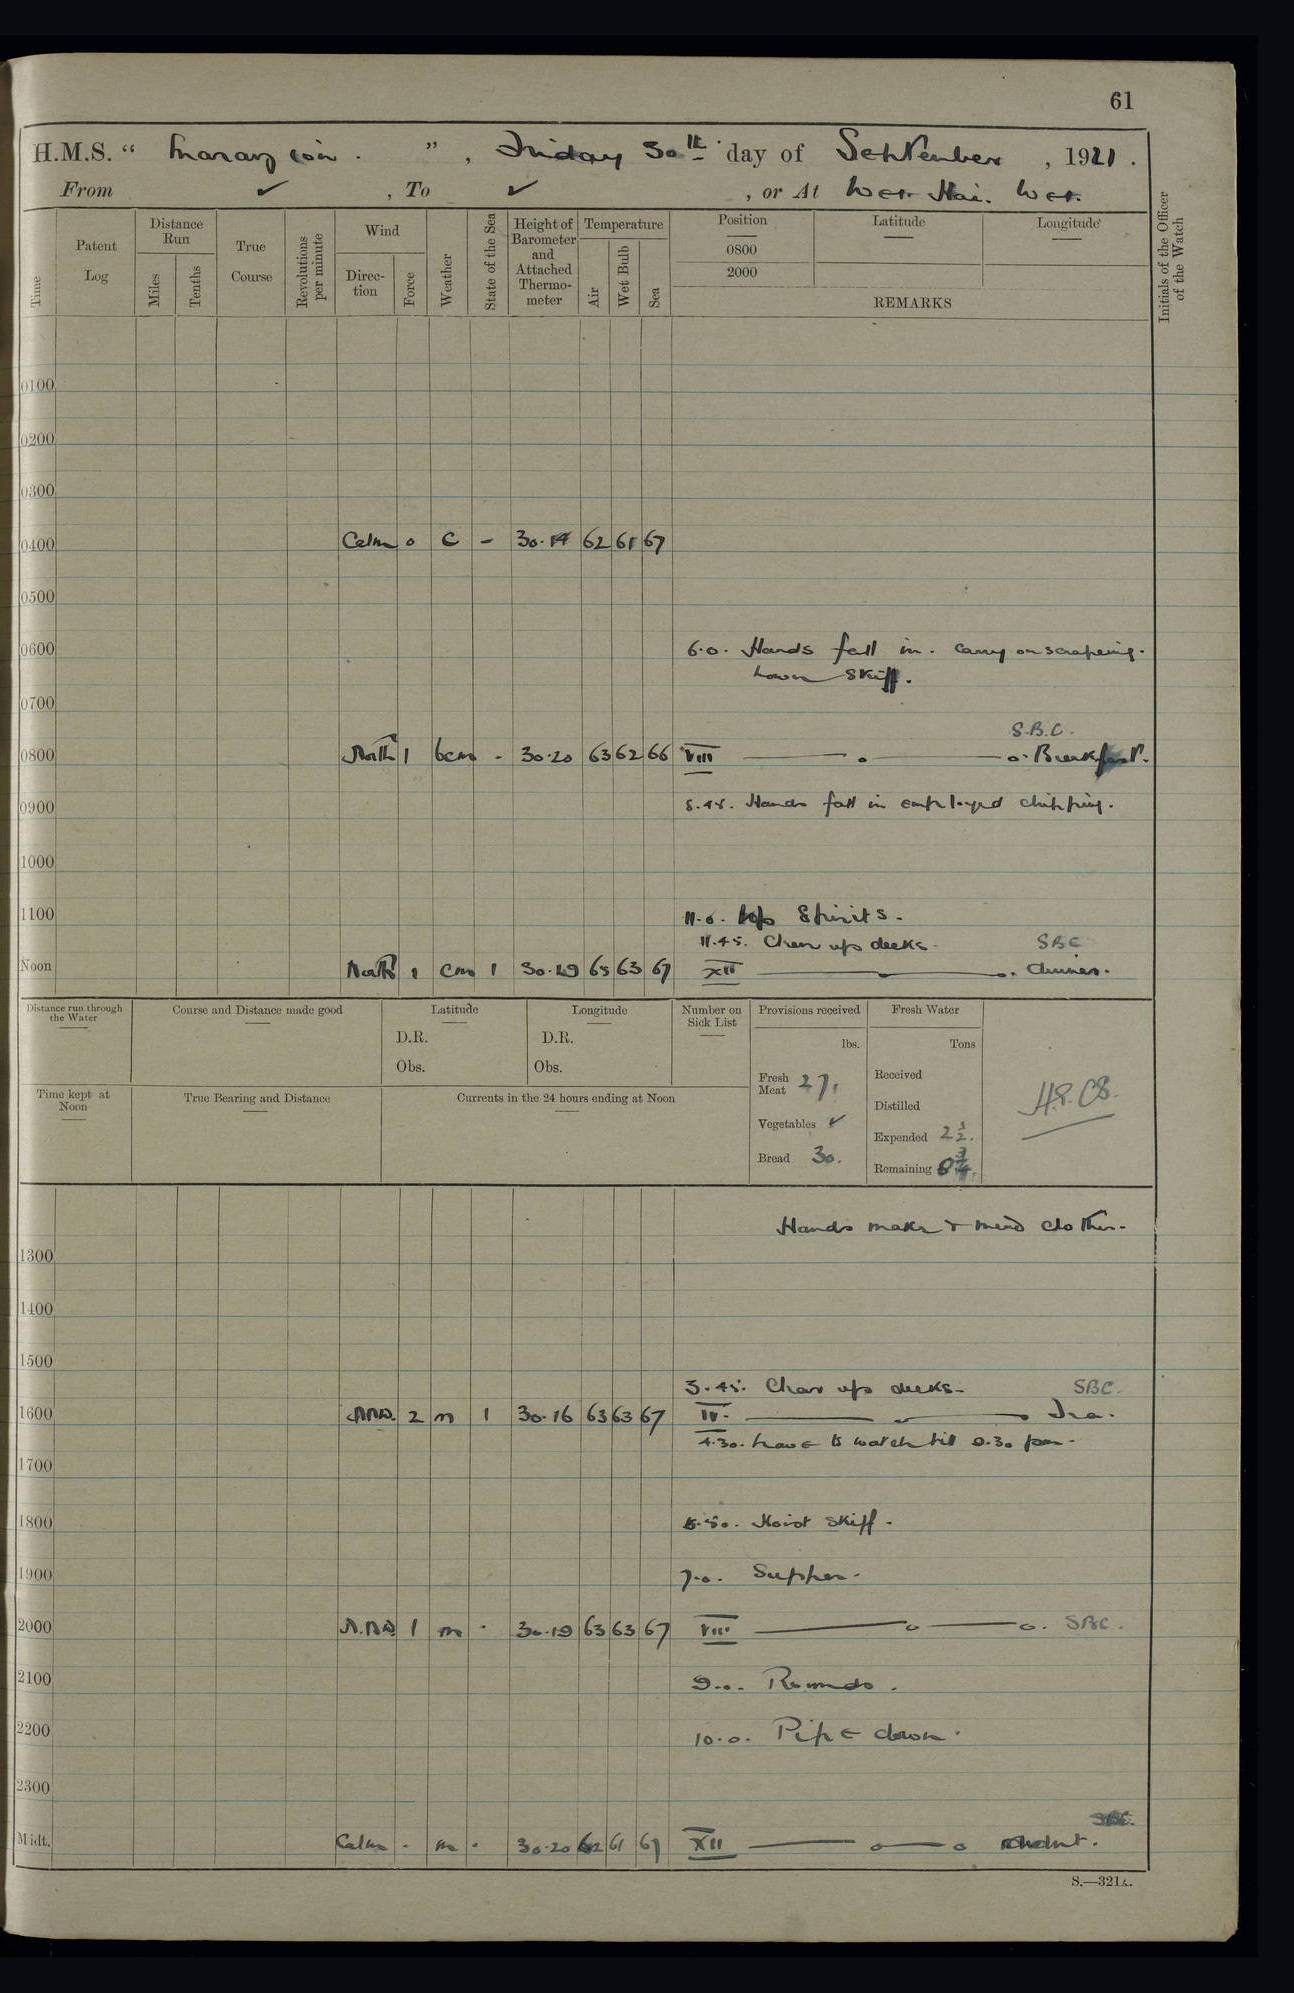 61
H.M.S. “ Marazion . ” , Friday 30th day of September , 1921 .
From ✓ , To ✓ , or At Wei. Hai. Wei.
Time
Patent Log
Distance Run
Miles
Tenths
True Course
Revolutions per minute
Wind
Direction
Force
Weather
State of the Sea
Height of Barometer and Attached Thermometer
Temperature
Air
Wet Bulb
Sea
Position
0800
2000
Latitude
Longitude
REMARKS
Initials of the Officer of the Watch
0100
0200
0300
0400 Calm 0 c - 30.14 62 61 67
0500
0600 6.0. Hands fall in. carry on scrapeing.
Lower Skiff.
0700
S.B.C.
0800 North 1 bcm - 30.20 63 62 66 VIII o o. Breakfast.
0900 8.45. Hands fall in employed chipping.
1000
1100 11.0. Up Spirits.
11.45. Clear up decks. SBC
Noon North 1 cm 1 30.19 63 63 67 XII Dinner.
Distance run through the Water
Course and Distance made good
Latitude
D.R.
Obs.
Longitude
D.R.
Obs.
Number on Sick List
Provisions received
lbs.
Fresh Meat 27.
Vegetables ✓
Bread 30.
Fresh Water
Tons
Received
Distilled
Expended 2½.
Remaining
Time kept at Noon
True Bearing and Distance
Currents in the 24 hours ending at Noon
Hands make & mend clothes.
1300
1400
1500
3.45. Clear up decks. SBC.
1600 NNW. 2 m 1 30.16 63 63 67 IV. Tea.
4.30. Leave to watch till
1700
1800 Hoist skiff.
1900 7.0. Supper.
2000 N.NW 1 m . 30.19 63 63 67 VIII o o. SBC.
2100 9.0. Rounds.
2200 10.0. Pipe down.
2300
SBC.
Midt. Calm . m . 30.20 62 61 67 XII o o
S.—321A.